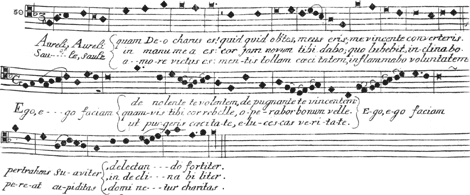 59
Aureli, Aureli quam De-o charus es! quid quid obstes, meus eris, me vincente converteris.
in manu mea es: cor jam novum tibi dabo; quo lubebit, inclinabo
Sau---te, saule a--mo-re victus es: men-tis tollam caecitatem, inflammabo voluntatem
Ego, e---go faciam de nolente volentem, de pugnante vincentem Ego, e-go faciam
quam-vis tibi cor rebelle, o-pe-rabor bonum velle
ut pur-geris caecita-te, e-lu-ces-cas ve-ri-ta-te.
pertrahens su-a-viter delectan---do fortiter.
in de cli---na bi liter.
pe-re-at cu-piditas domi ne--tur charitas.